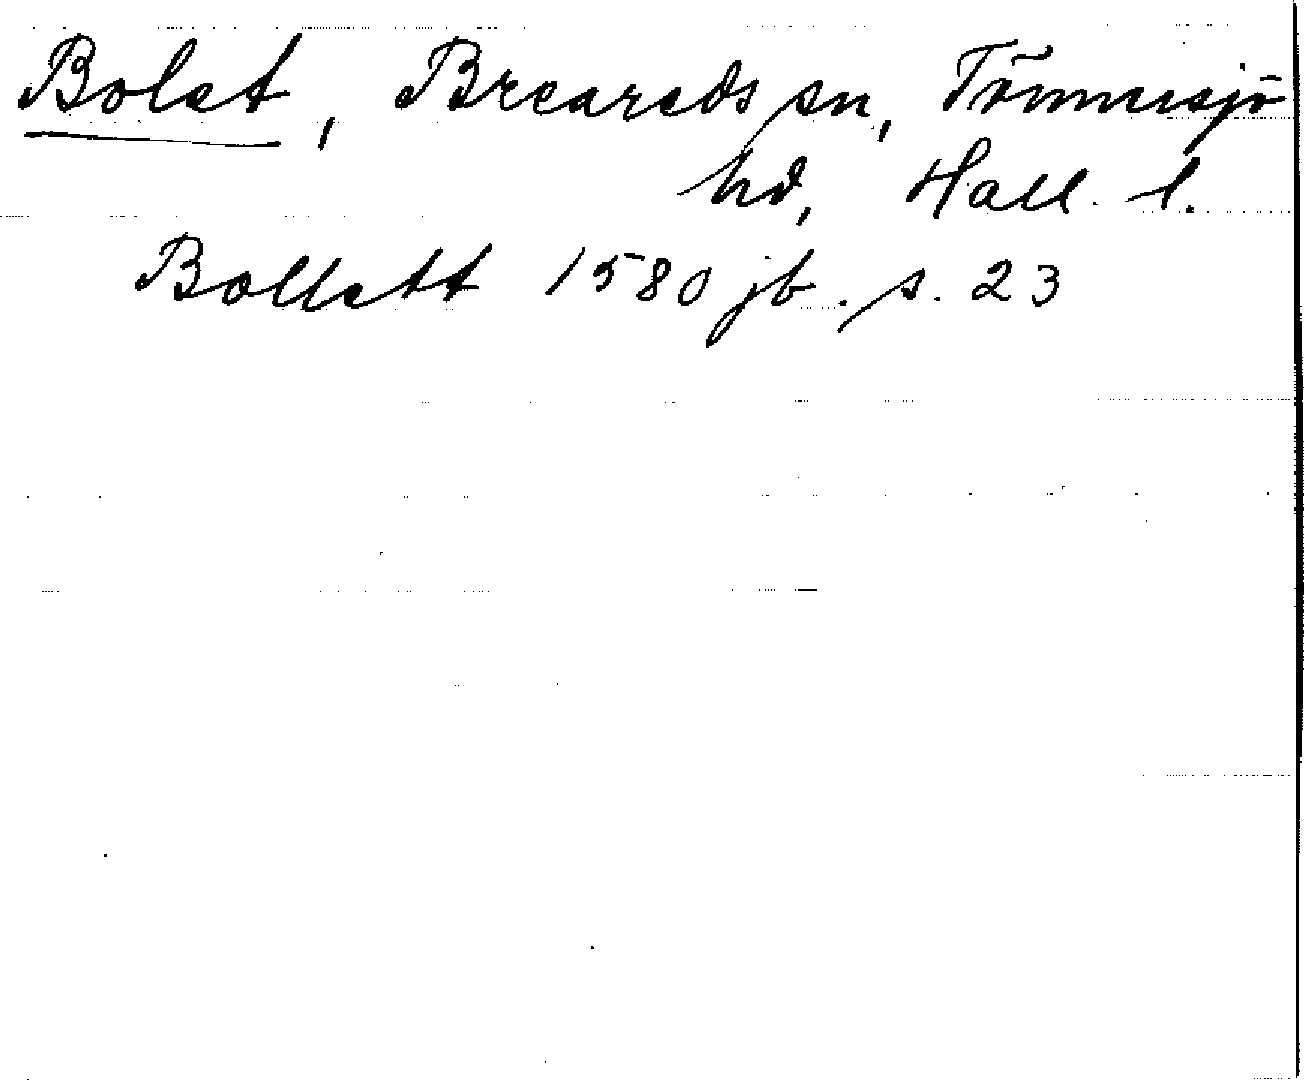 Bolet, Breareds sn, Tönnersjö
hd, Hall. l.
Bollett 1580 jb. s. 23